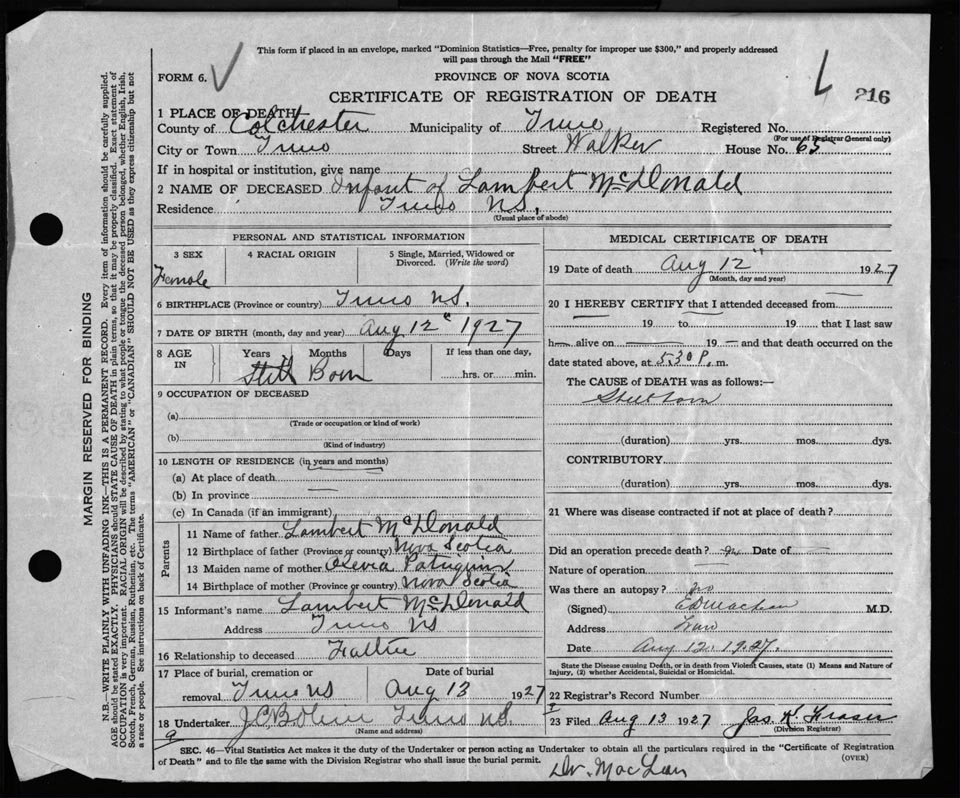 This form if placed in an envelope, marked "Dominion Statistics—Free, penalty for improper use $300," and properly addressed
will pass through the Mail "FREE"
FORM 6.
PROVINCE OF NOVA SCOTIA
CERTIFICATE OF REGISTRATION OF DEATH
216
1 PLACE OF DEATH
County of Colchester Municipality of Truro Registered No.
(For use of Registrar General only)
City or Town Truro Street Walker House No. 65
If in hospital or institution, give name
2 NAME OF DECEASED Infant of Lambert McDonald
Residence Truro NS,
(Usual place of abode)
PERSONAL AND STATISTICAL INFORMATION
3 SEX
Female
4 RACIAL ORIGIN
5 Single, Married, Widowed or
Divorced. (Write the word)
6 BIRTHPLACE (Province or country) Truro NS.
7 DATE OF BIRTH (month, day and year) Aug 12" 1927
8 AGE IN
Years Months Days
Still Born
If less than one day,
hrs. or min.
9 OCCUPATION OF DECEASED
(a)
(Trade or occupation or kind of work)
(b)
(Kind of industry)
10 LENGTH OF RESIDENCE (in years and months)
(a) At place of death
(b) In province
(c) In Canada (if an immigrant)
Parents
11 Name of father Lambert McDonald
12 Birthplace of father (Province or country) Nova Scotia
13 Maiden name of mother
14 Birthplace of mother (Province or country) Nova Scotia
15 Informant's name Lambert McDonald
Address Truro NS
16 Relationship to deceased Father
17 Place of burial, cremation or
removal Truro NS
Date of burial
Aug 13 1927
18 Undertaker Truro NS.
(Name and address)
9
MEDICAL CERTIFICATE OF DEATH
19 Date of death Aug 12" 1927
(Month, day and year)
20 I HEREBY CERTIFY that I attended deceased from
19 to 19 that I last saw
h alive on — 19 — and that death occurred on the
date stated above, at 5.30 P. m.
The CAUSE of DEATH was as follows:—
Stillborn
(duration) yrs. mos. dys.
CONTRIBUTORY
(duration) yrs. mos. dys.
21 Where was disease contracted if not at place of death?
Did an operation precede death? Date of
Nature of operation
Was there an autopsy? no
(Signed) M.D.
Address Truro
Date Aug 12. 1927.
State the Disease causing Death, or in death from Violent Causes, state (1) Means and Nature of
Injury, (2) whether Accidental, Suicidal or Homicidal.
22 Registrar's Record Number
23 Filed Aug 13 1927 Jas. K Fraser
(Division Registrar)
SEC. 46—Vital Statistics Act makes it the duty of the Undertaker or person acting as Undertaker to obtain all the particulars required in the "Certificate of Registration
of Death" and to file the same with the Division Registrar who shall issue the burial permit.
(OVER)
Dr. MacLean
MARGIN RESERVED FOR BINDING
N.B.—WRITE PLAINLY WITH UNFADING INK—THIS IS A PERMANENT RECORD. Every item of information should be carefully supplied.
AGE should be stated EXACTLY. PHYSICIANS should STATE CAUSE OF DEATH in plain terms, so that it may be properly classified. Exact statement of
OCCUPATION is very important. RACIAL ORIGIN will be described by stating to what people or tongue the deceased person belonged, whether English, Irish,
Scotch, French, German, Russian, Ruthenian, etc. The terms "AMERICAN" or "CANADIAN" SHOULD NOT BE USED as they express citizenship but not
a race or people. See instructions on back of Certificate.